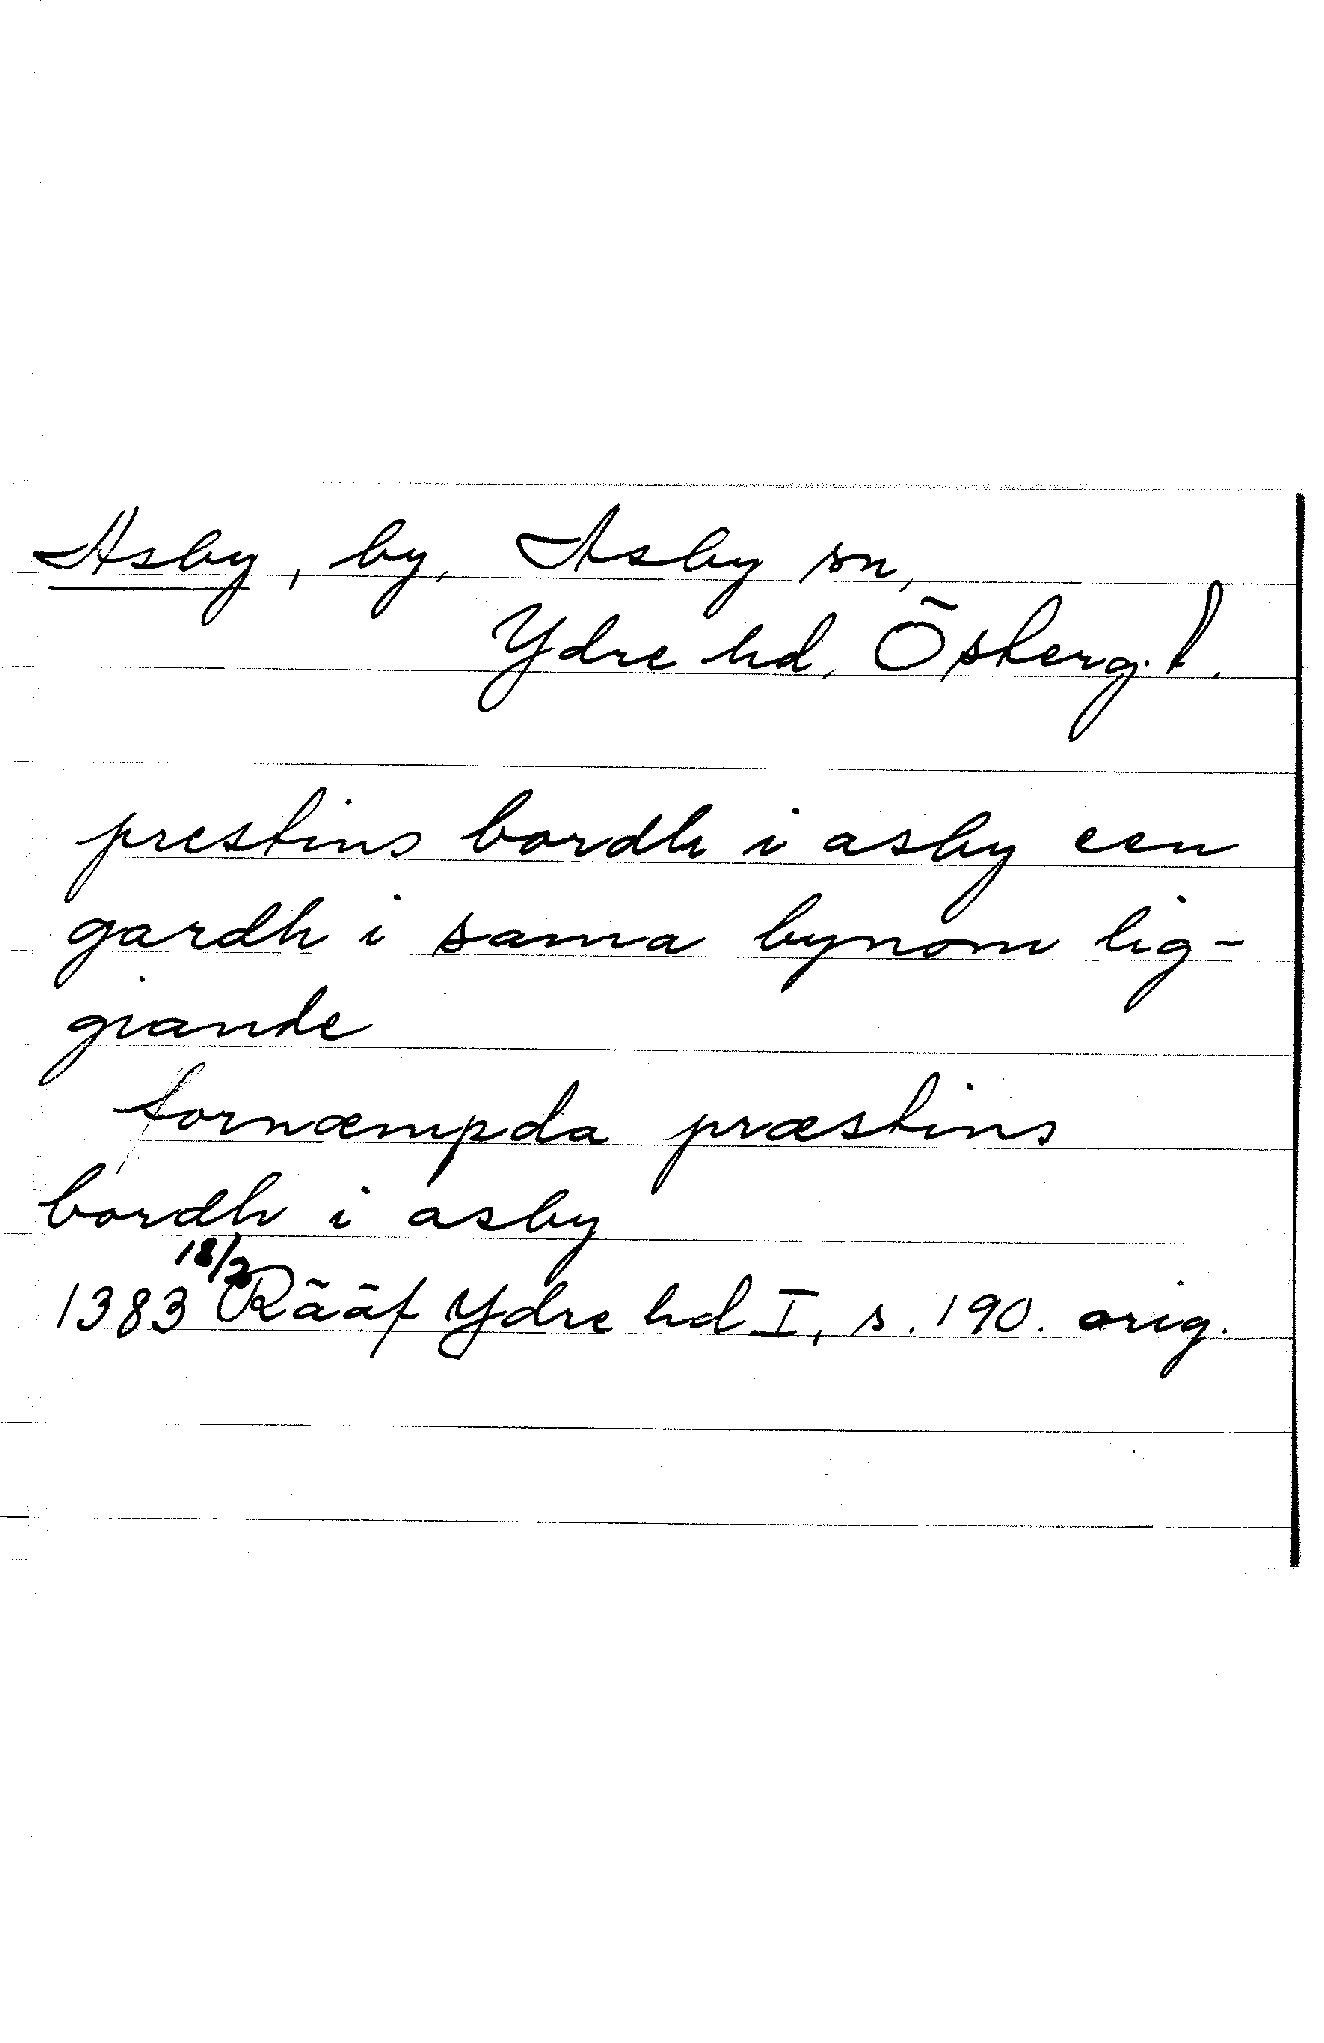 Asby, by, Asby sn,
Ydre hd, Österg. l.
prestins bordh i asby een
gardh i sama bynom lig-
giande
fornæmpda præstins
bordh i asby
1383 18/2 Rääf Ydre hd I, s. 190. orig.